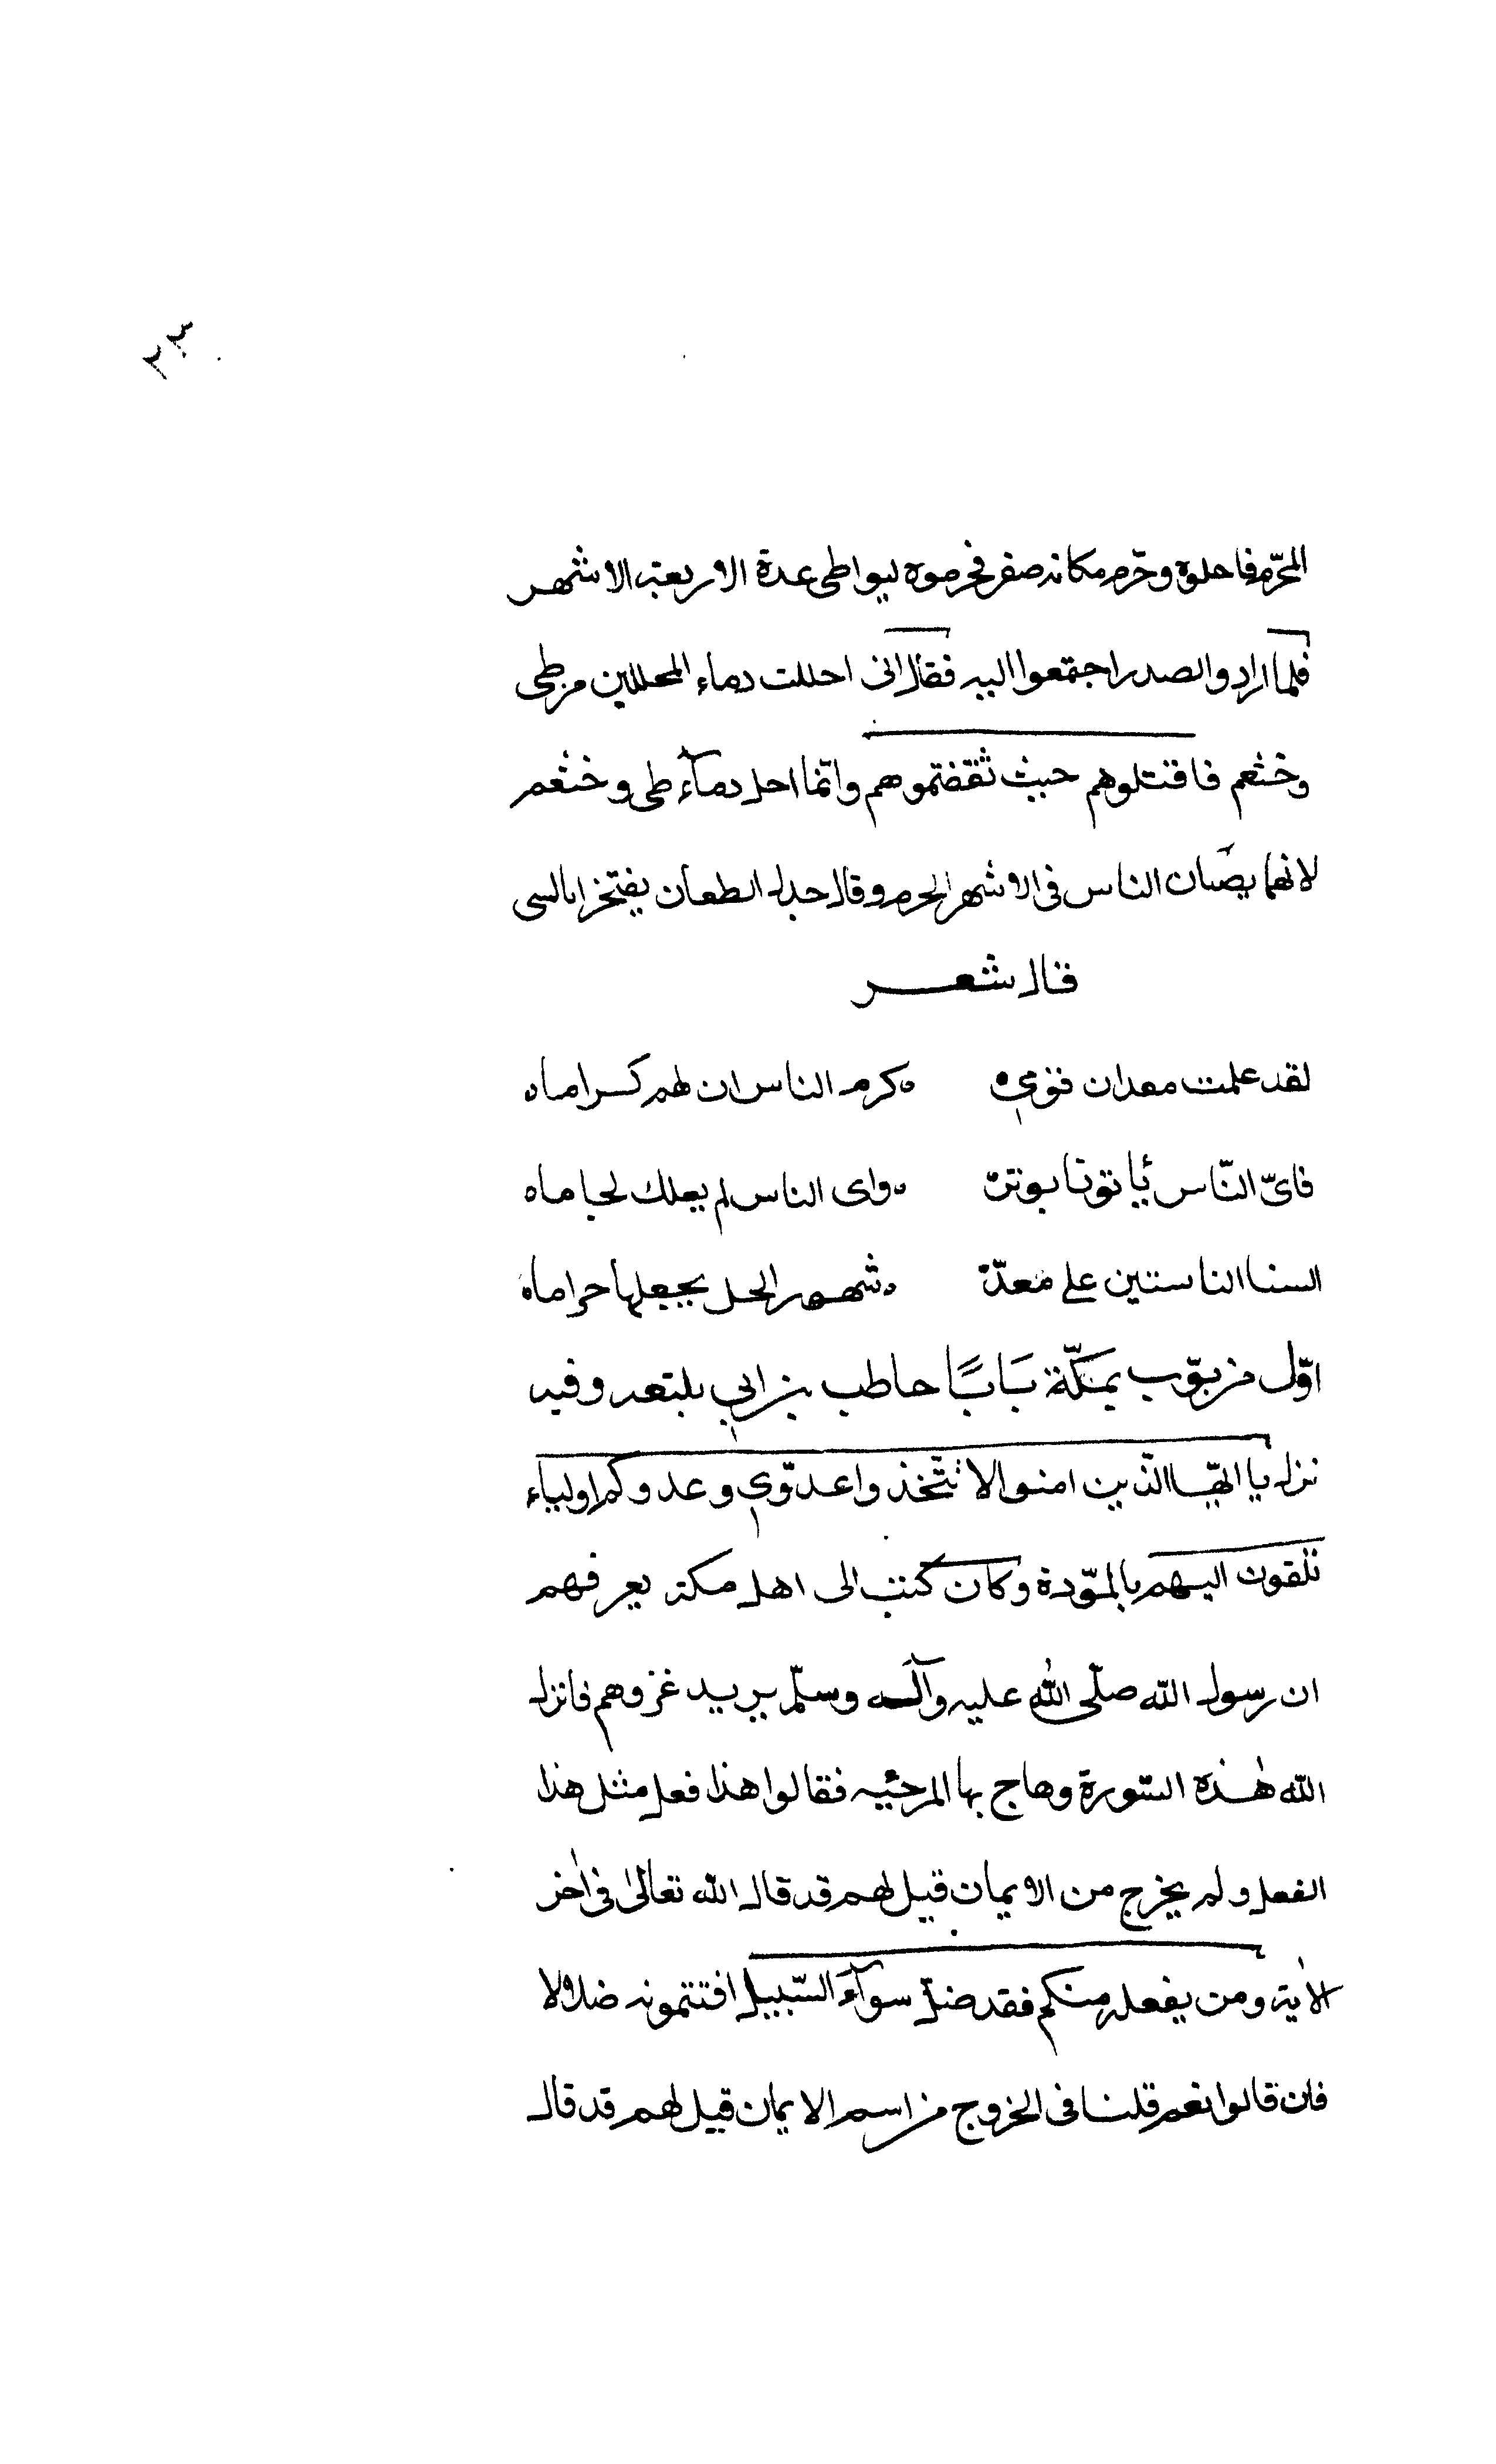 ٢٣
المحرّم فاحلوه وحرّم مكانه صفر فحرموه ليواطى عدة الاربعة الاشهر
فلما ارادوا لصدر اجتمعوا اليه فقال انى احللت دماء المحللين من طى
وخثعم فاقتلوهم حيث ثقفتموهم وانّما احل دمآء طى وخثعم
لانهما يصّبان الناس فى الاشهر الحرم وقال جدل الطعان يفتخر بالسى
قال شعر
لقد علمت معدان قومي ه كرم الناس ان لهم كراما ه
فاىّ النّاس ياتونا بوتره ه واى الناس لم يعلك لجاما ه
السنا الناستين على معدّ ه شهور الحل يجعلها حراما ه
اوّل من بوّب بمكّة بَابًا حاطب بن ابي بلتعه وفيه
نزل يا ايّها الّذين امنوا لا تتّخذوا عدوّي وعدوكم اولياء
تلقون اليهم بالموّدة وكان كتب الى اهل مكة يعرفهم
ان رسول الله صلّى الله عليه وآله وسلّم يريد غزوهم فانزل
الله هٰذه السّورة وحاج بها المرجئيه فقالوا هذا فعل مثل هذا
الفعل ولم يخرج من الايمان قيل لهم قد قال الله تعالىٰ فى اٰخر
الاٰية ومن يفعله منكم فقد ضلّ سوآءَ السّبيل افتتمونه ضلالا
فان قالوا نعم قلنا فى الخروج من اسم الايمان قيل لهم قد قال